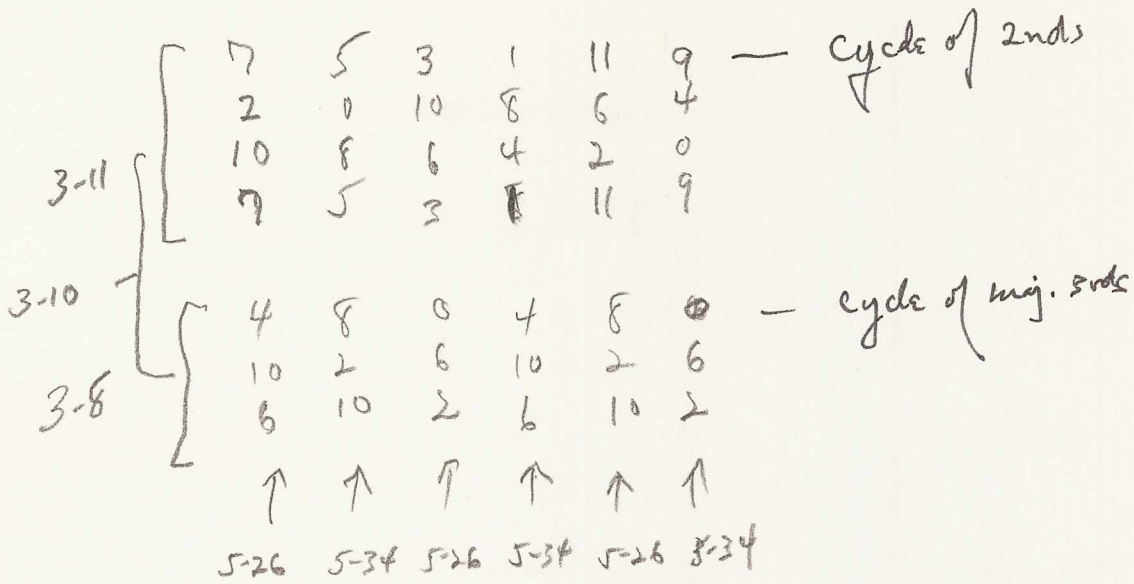 7 5 3 1 11 9 — cycle of 2nds
2 0 10 8 6 4
10 8 6 4 2 0
3-11
7 5 3 1 11 9
3-10
4 8 0 4 8 0 — cycle of maj. 3rds
10 2 6 10 2 6
3-8
6 10 2 6 10 2
↑ ↑ ↑ ↑ ↑ ↑
5-26 5-34 5-26 5-34 5-26 5-34